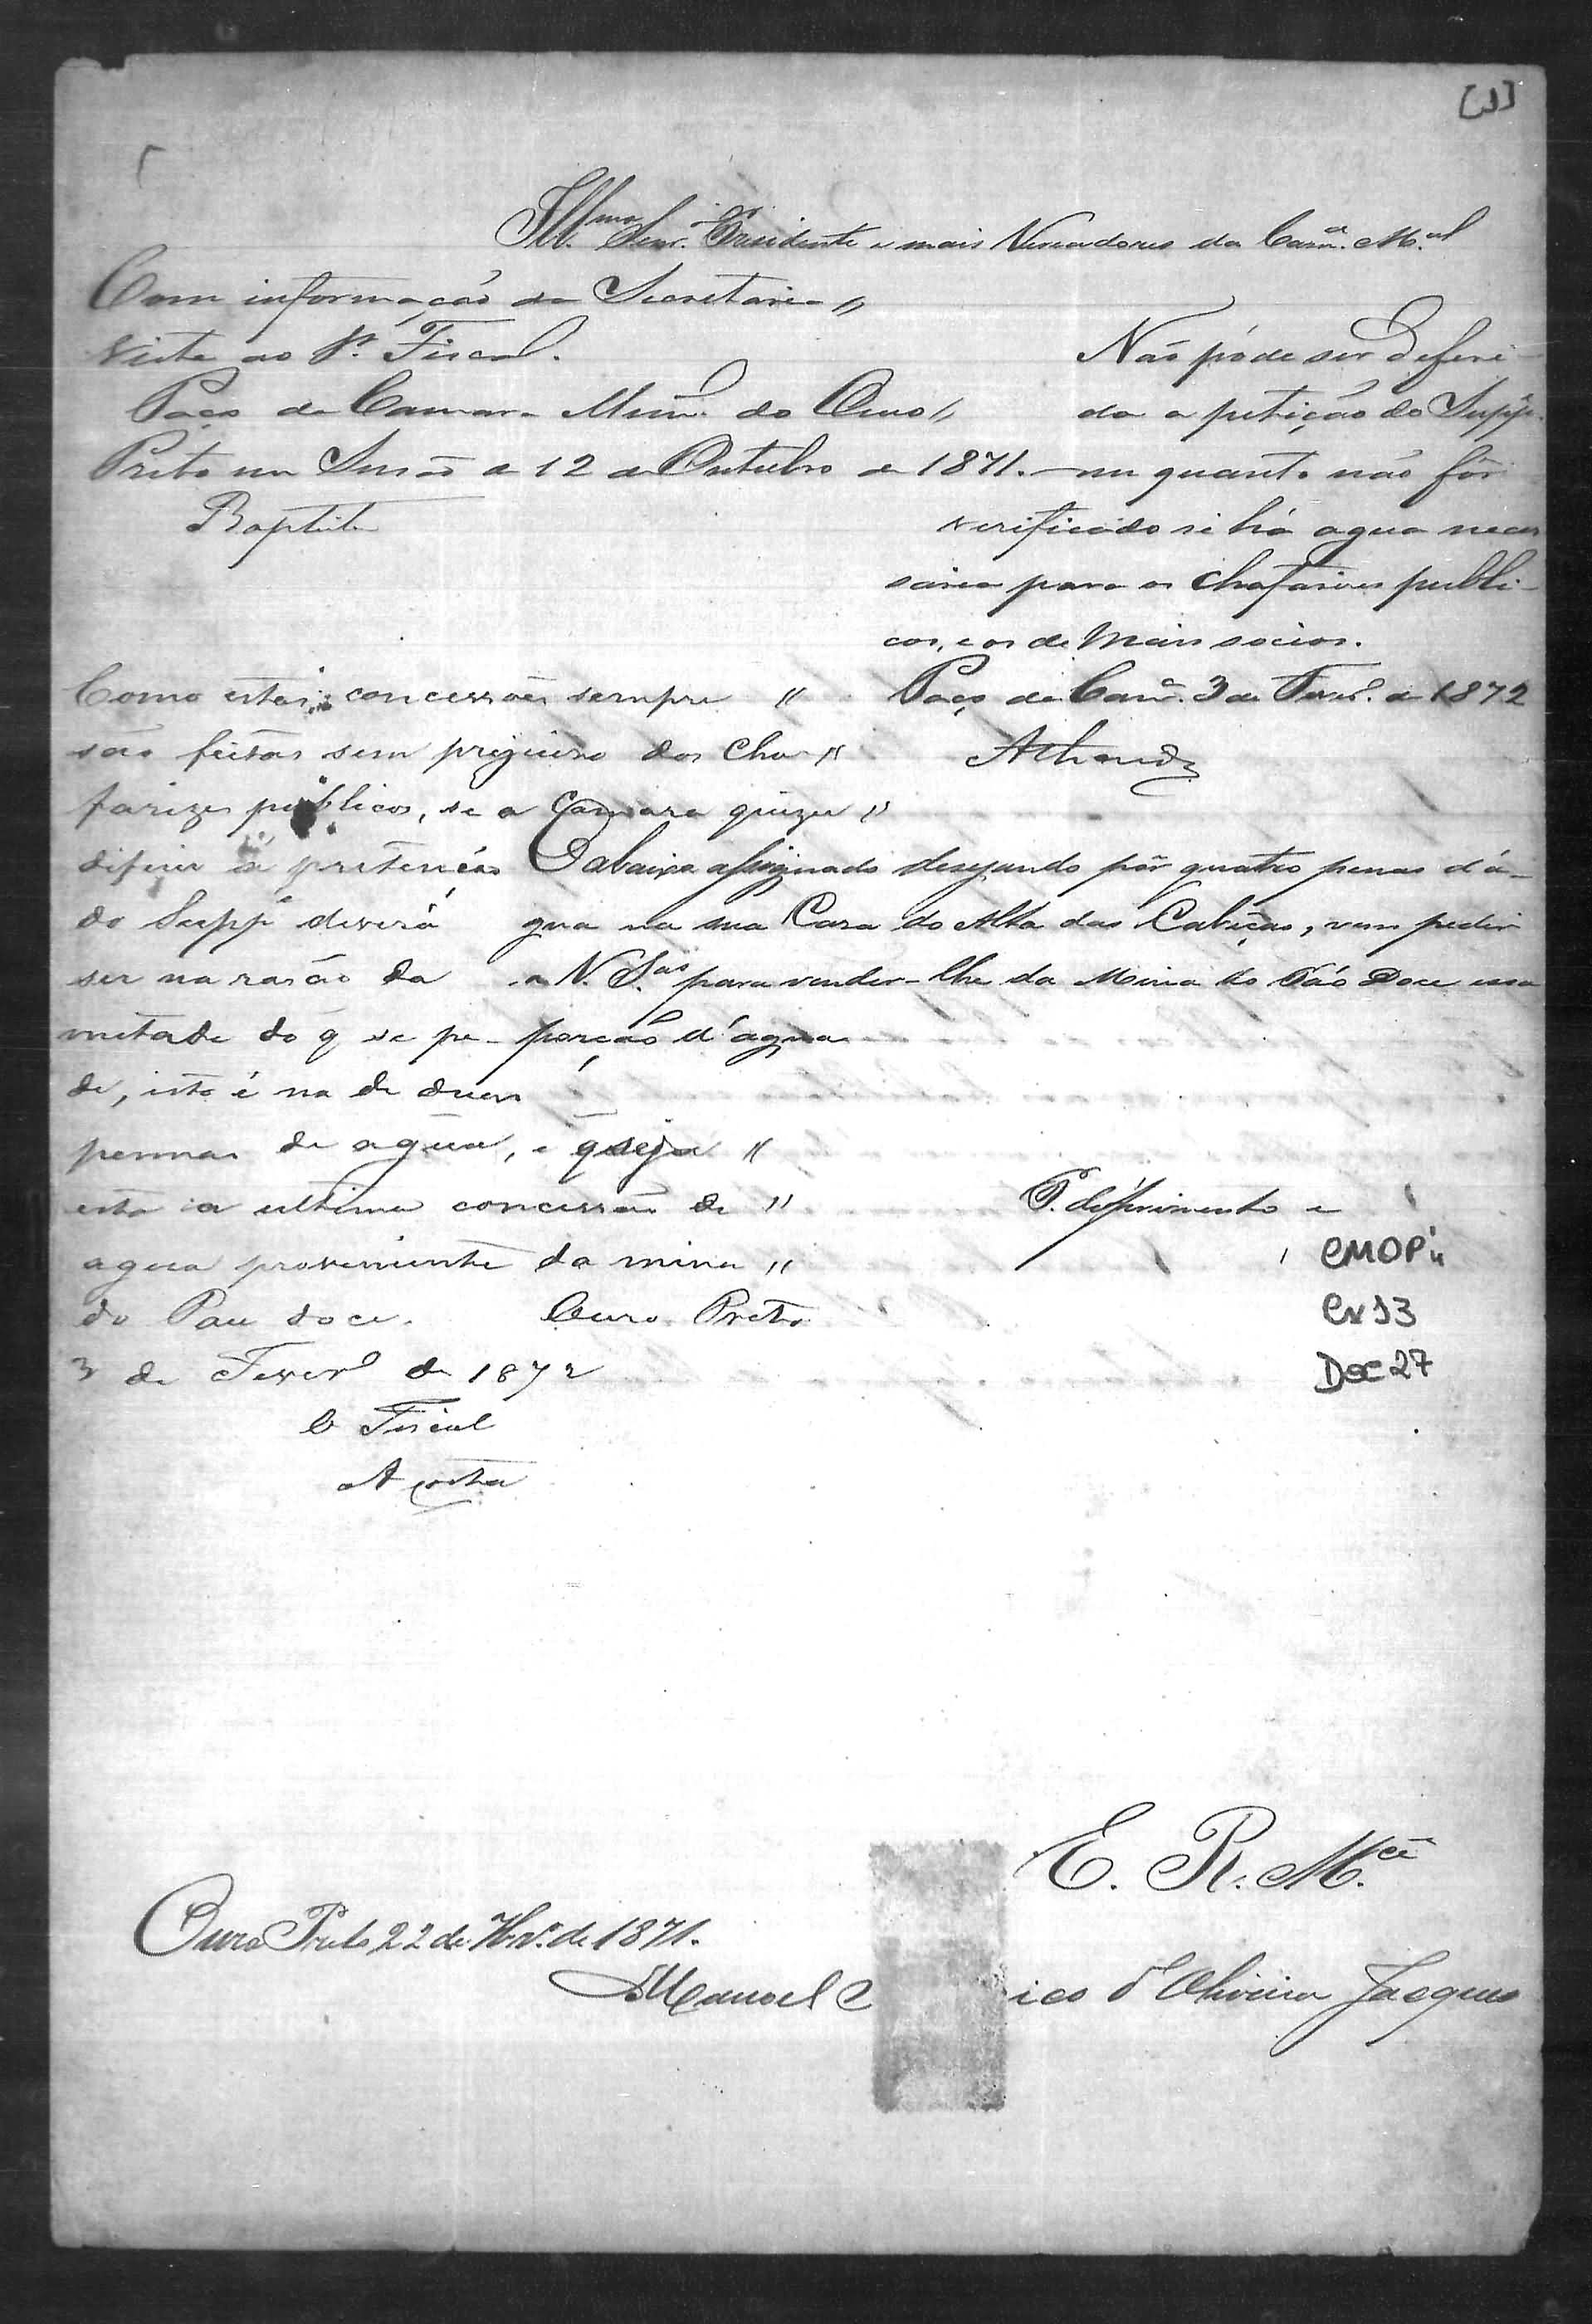 [1]
Ill.mo Senr. Presidente e mais Vereadores da Camr.a M.al
Com informação da Secretaria //
vista ao Sr. Fiscal.
Paço da Camara Mun. do Ouro //
Preto em Sessão de 12 de Outubro de 1871.
Baptista
Não póde ser deferi-
da a petição do Supp.
em quanto não fôr
verificado si há agua neces
saria para os chafarizes publi-
cos, e os de mais socios.
Paço da Camr.a 3 de Fever.o de 1872
Como estas concessões sempre //
são feitas sem prejuiso dos cha- //
farizes publicos, se a Camara quizer //
diferir a pretenção
do Supp.e deverá
ser na rasão da
metade do q se pe-
de, isto é na de duas
pennas de agua, e q seja //
esta a ultima concessão de //
agua proveniente da mina //
do Pau doce. Ouro Preto
3 de Fever.o de 1872
O Fiscal
A Costa
O abaixo assignado desejando pôr quatro penas d'a-
gua na sua Casa do Alto das Cabeças, vem pedir
a V. S.as para vender-lhe da Mina do Páo Doce essa
porção d'agua
P. deferimento e
CMOP
Cx 13
Doc 27
E. R. M.ce
Ouro Preto 22 de de 1871.
Manoel d'Oliveira Jacques